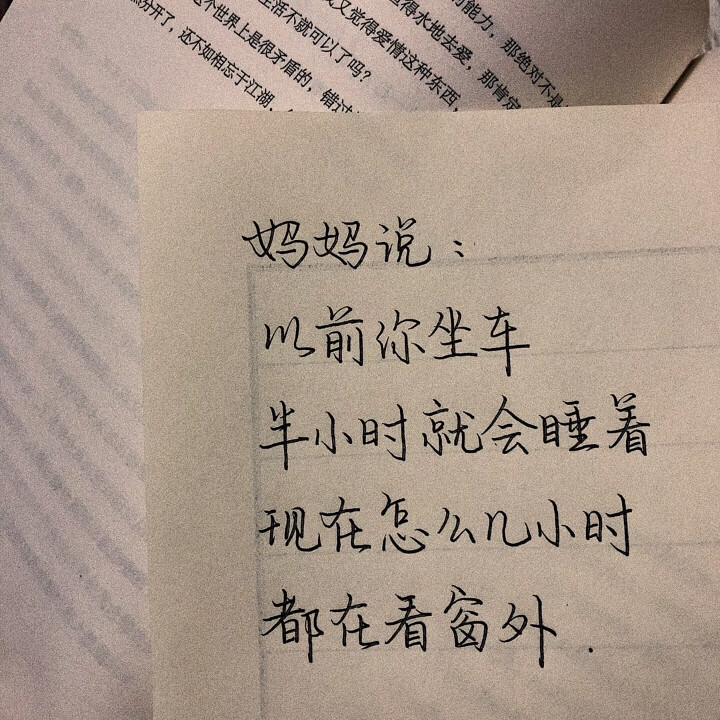 能力，那绝对不是
得水地去爱，那肯定
又觉得爱情这种东西，
生活不就可以了吗？
个世界上是很矛盾的，错过
分开了，还不如相忘于江湖，
妈妈说：
以前你坐车
半小时就会睡着
现在怎么几小时
都在看窗外.